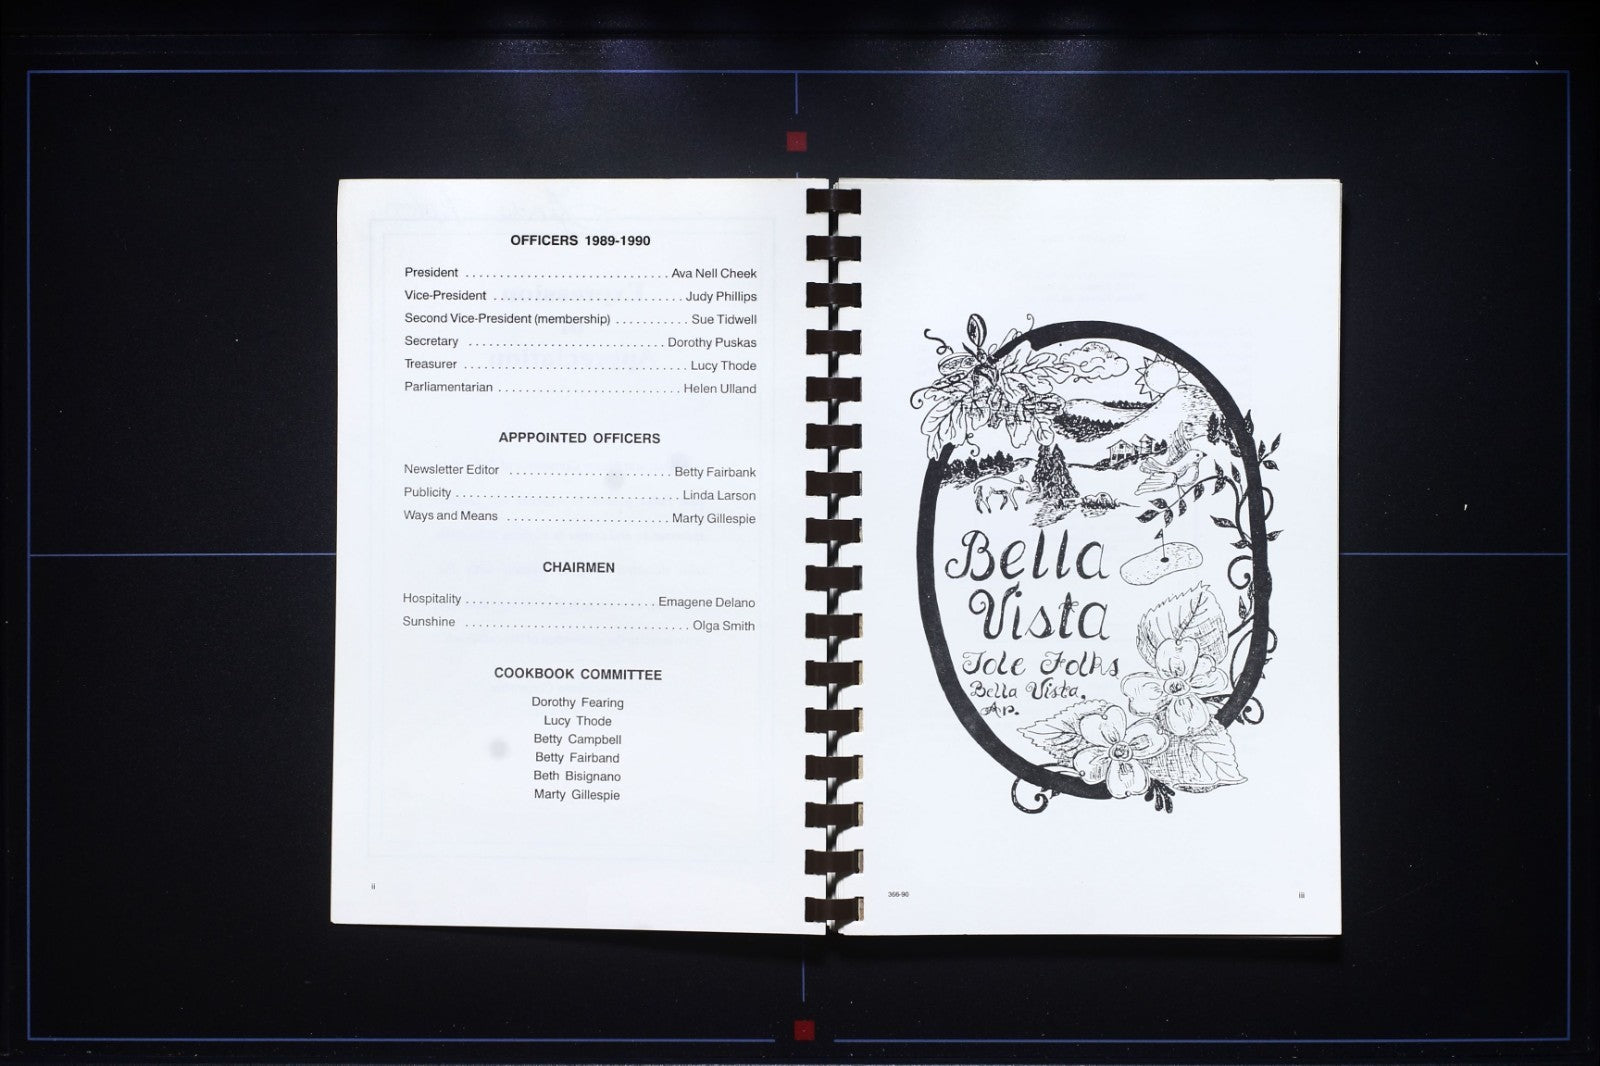 OFFICERS 1989-1990
President ............................ Ava Nell Cheek
Vice-President ............................ Judy Phillips
Second Vice-President (membership) ........... Sue Tidwell
Secretary ............................. Dorothy Puskas
Treasurer ................................. Lucy Thode
Parliamentarian ........................... Helen Ulland
APPPOINTED OFFICERS
Newsletter Editor ........................ Betty Fairbank
Publicity ................................. Linda Larson
Ways and Means ........................ Marty Gillespie
CHAIRMEN
Hospitality ............................ Emagene Delano
Sunshine ................................. Olga Smith
COOKBOOK COMMITTEE
Dorothy Fearing
Lucy Thode
Betty Campbell
Betty Fairband
Beth Bisignano
Marty Gillespie
ii
Bella
Vista
Tole Folks
Bella Vista,
Ar.
366-90
iii